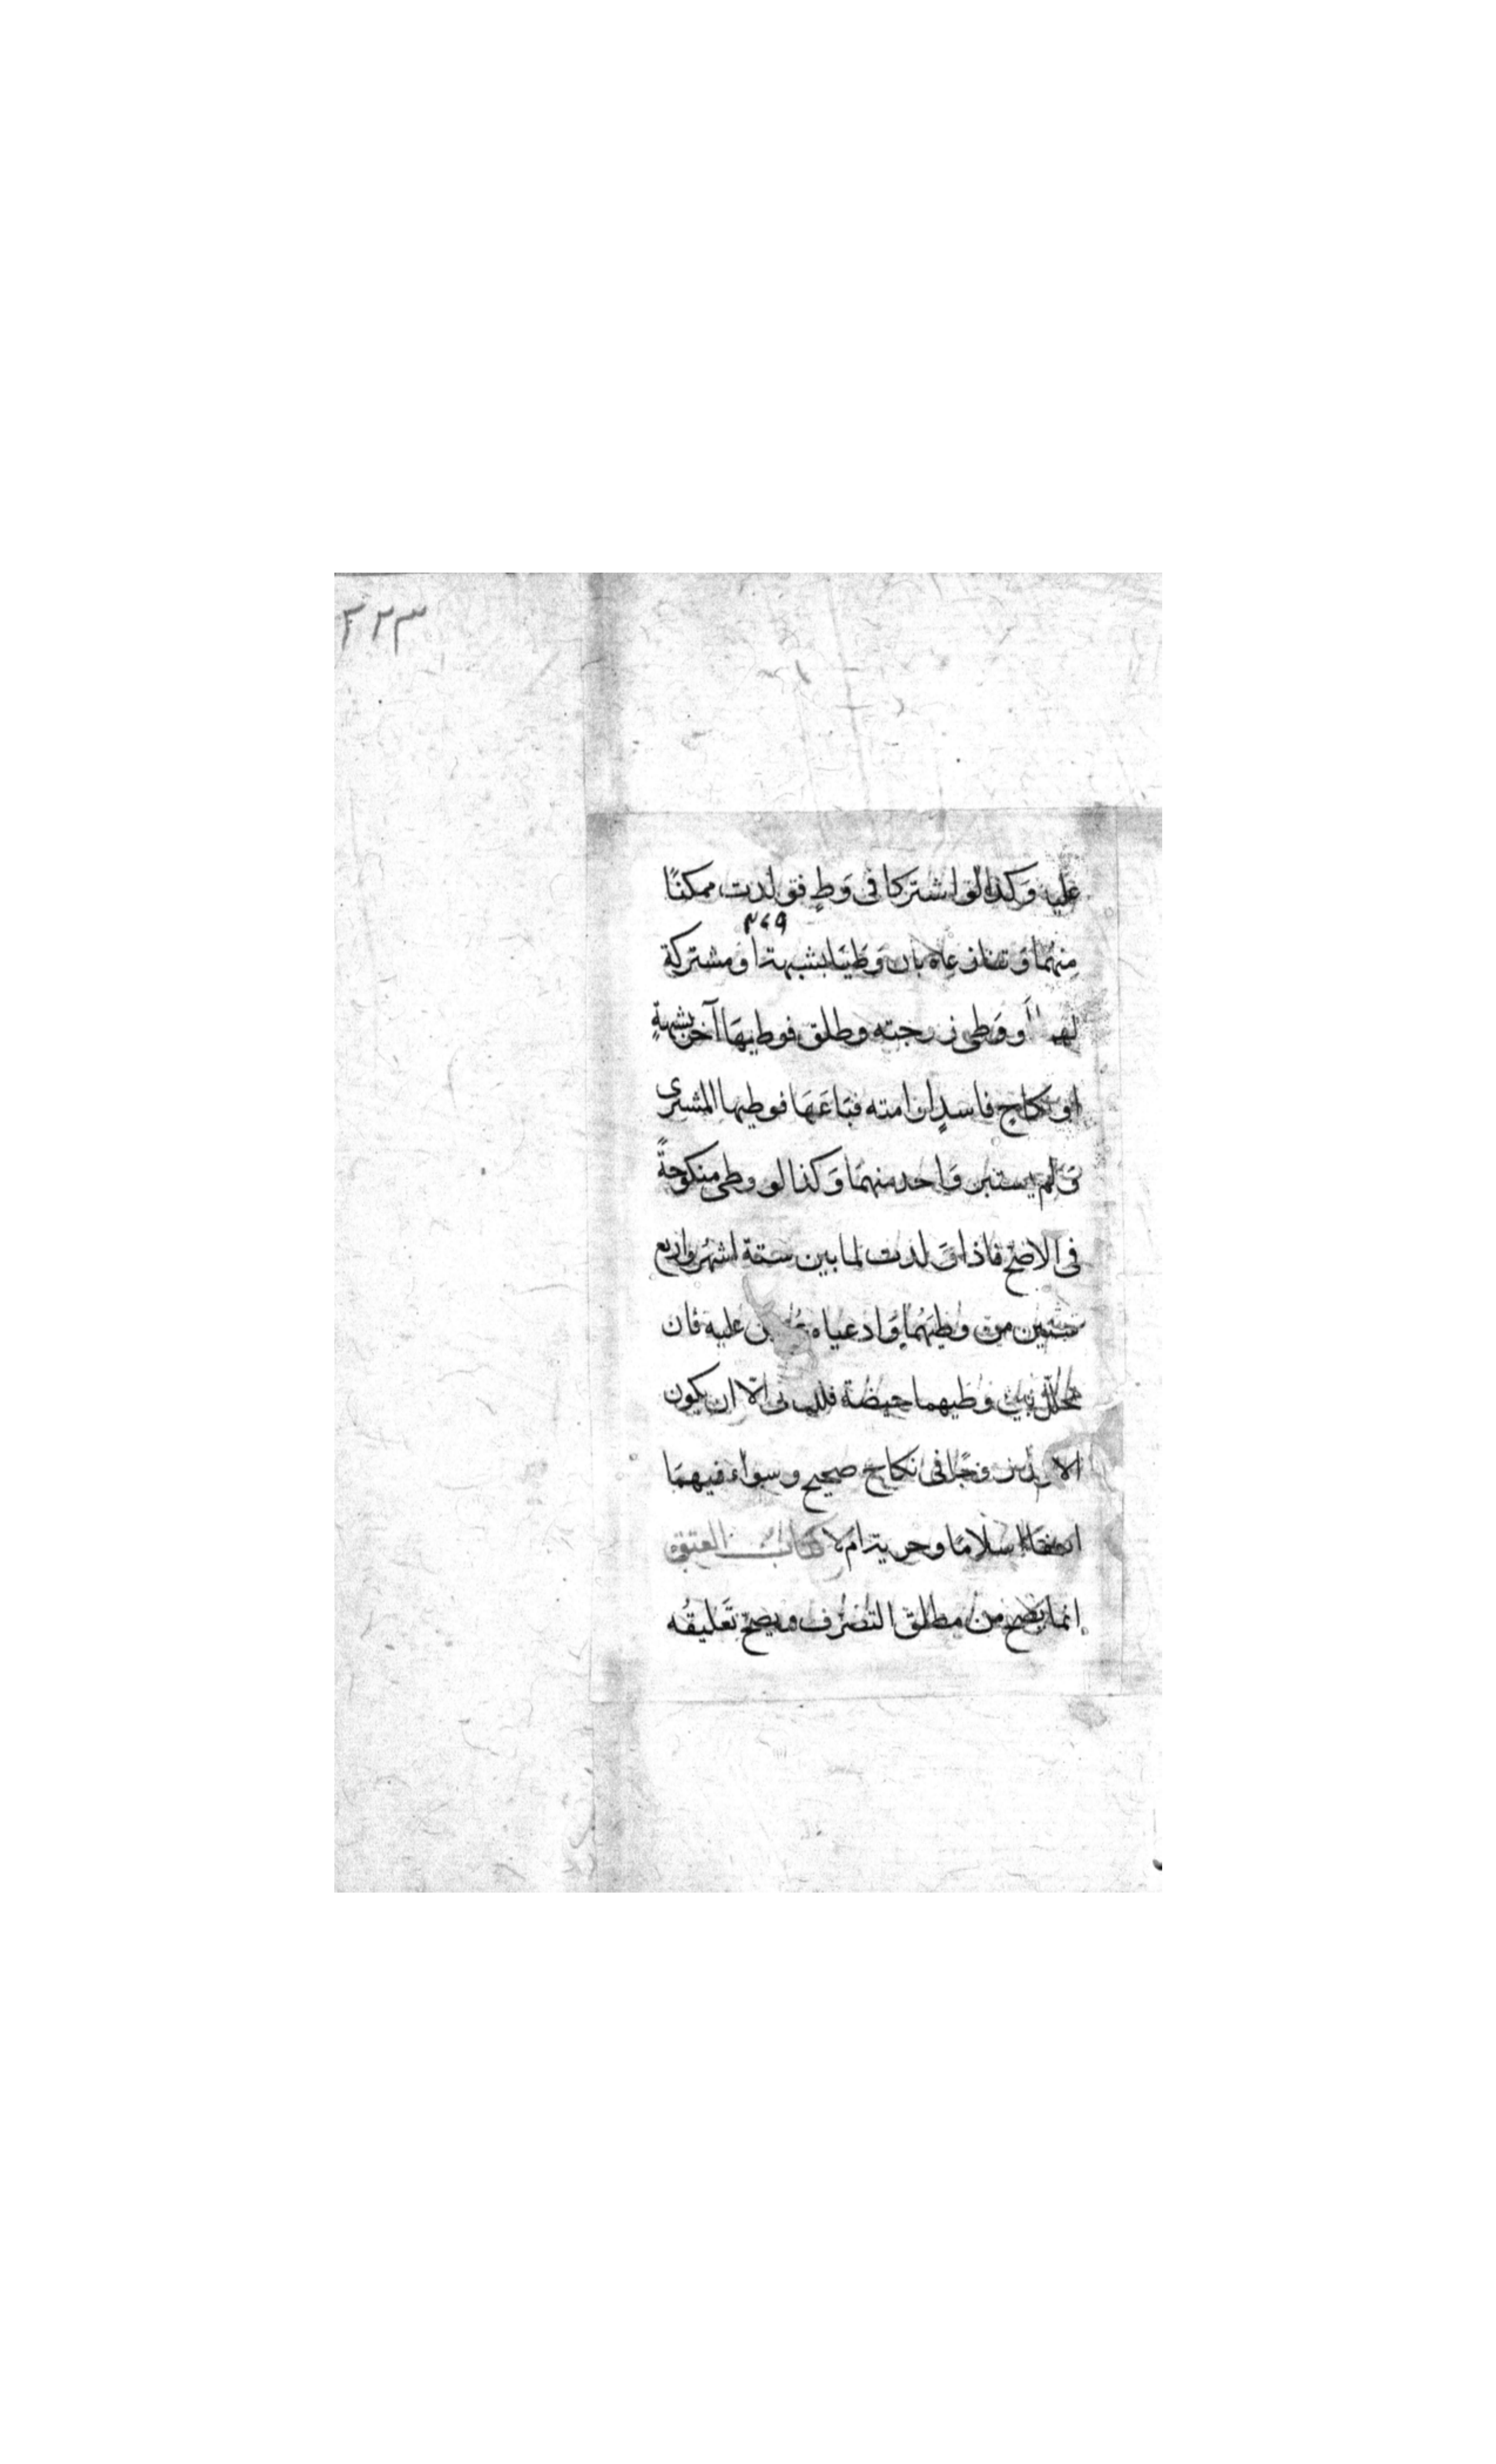 ٣٢٣
عليه وَكذا لو اشتَركا فى وَطٍ فوَلدت ممكنًا
٣٧٩
مِنهُمَا وَ تنازعاه بان وَطِيَا بشبهة او مشتركة
لهما اَو وَطى زوجته وطلق فوطيهَا آخر بشبهةٍ
او نكاحٍ فاسدٍ او امته فبَاعَهَا فوطيها المشترى
وَلم يستبر وَاحد منهمَا وَكذا لو وطى منكوحةً
فى الاصَحّ فاذا وَلدت لما بين ستة اشهُر واربع
سنين من وطيَهُما وَادعياه عُرض عليه فان
تخلّل بين وَطيهما حيضة فللثانى الّا ان يكون
الاول زوجًا فى نكاح صحيح وسواء فيهمَا
اتفقا اسلامًا وحرية ام لا كتابُ العتق
انما يصح من مطلق التصرُف ويصحّ تَعليقُه